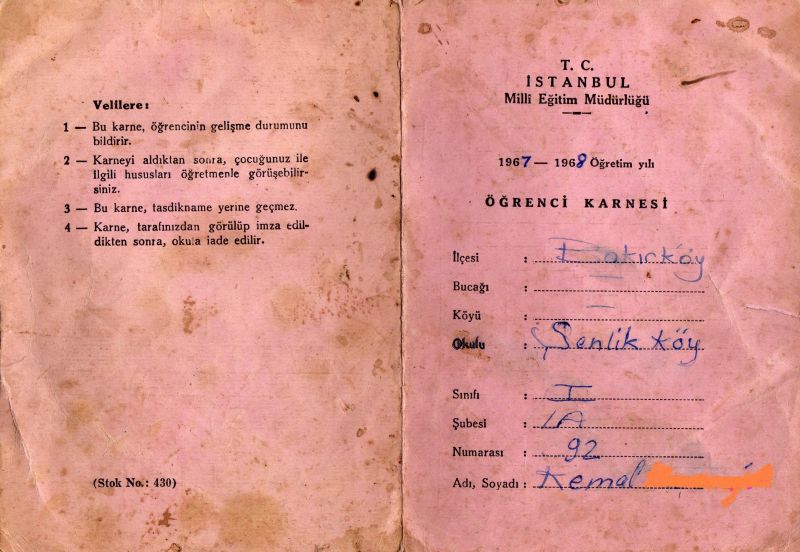 Velilere:
1 — Bu karne, öğrencinin gelişme durumunu
bildirir.
2 — Karneyi aldıktan sonra, çocuğunuz ile
ilgili hususları öğretmenle görüşebilir-
siniz.
3 — Bu karne, tasdikname yerine geçmez.
4 — Karne, tarafınızdan görülüp imza edil-
dikten sonra, okula iade edilir.
(Stok No.: 430)
T. C.
İSTANBUL
Millî Eğitim Müdürlüğü
1967 — 1968 Öğretim yılı
ÖĞRENCİ KARNESİ
İlçesi : Bakırköy
Bucağı :
Köyü : —
Okulu : Şenlik köy
Sınıfı : I
Şubesi : 1A
Numarası : 92
Adı, Soyadı : Kemal